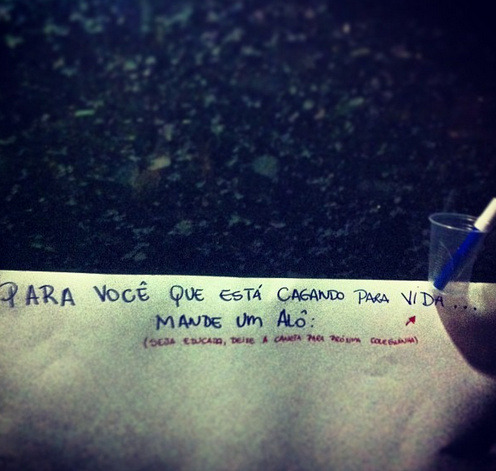 PARA VOCÊ QUE ESTÁ CAGANDO PARA VIDA...
MANDE UM ALÔ:
(SEJA EDUCADA, DEIXE A CANETA PARA PRÓXIMA COLEGUINHA)